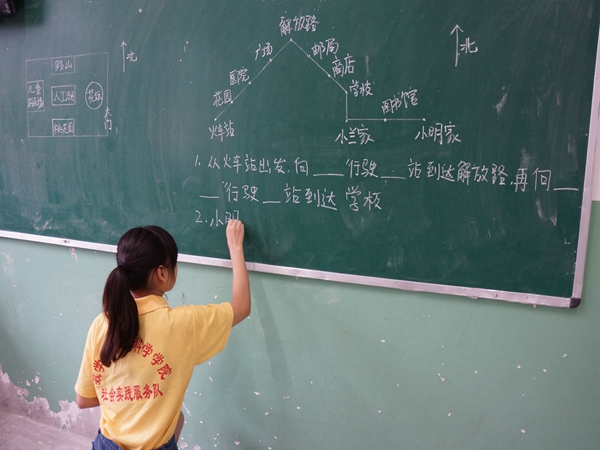 北
假山
儿童
人工湖
花坛
桃花园
东门
解放路
广场
邮局
医院
商店
花园
学校
火车站
图书馆
小兰家
小明家
北
1.从火车站出发,向____行驶___站到达解放路,再向___
__行驶__站到达学校
2.小明
学学院
社会实践服务队